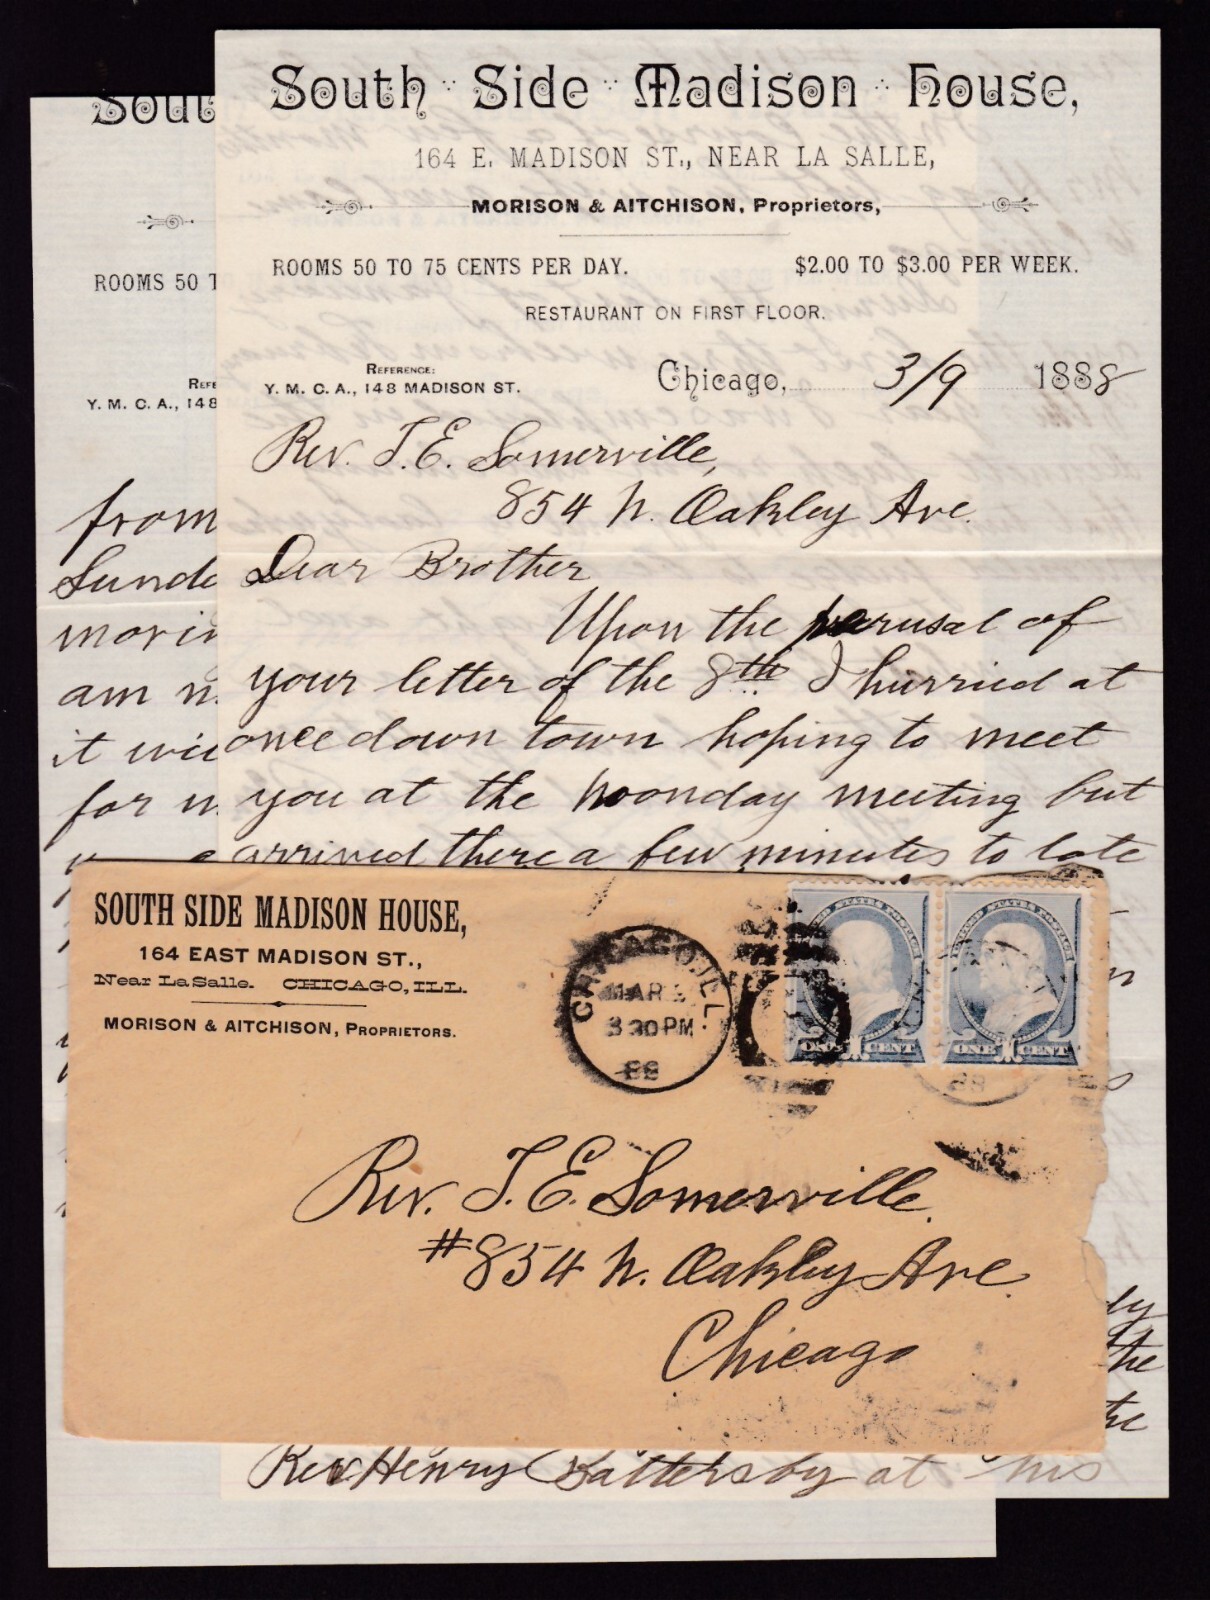 South Side Madison House,
164 E. MADISON ST., NEAR LA SALLE,
MORISON & AITCHISON, Proprietors,
ROOMS 50 TO 75 CENTS PER DAY. $2.00 TO $3.00 PER WEEK.
RESTAURANT ON FIRST FLOOR.
REFERENCE:
Y. M. C. A., 148 MADISON ST.
Chicago, 3/9 1888
Rev. T. E. Somerville,
854 N. Oakley Ave.
Dear Brother
Upon the perusal of
your letter of the 8th I hurried at
once down town hoping to meet
you at the Noonday meeting but
arrived there a few minutes to late
ly
the
the
Rev Henry Battersby at his
Sout
ROOMS 50 T
REFE
Y. M. C. A., 148
from
Sunda
movin
am n
it wil
for m
SOUTH SIDE MADISON HOUSE,
164 EAST MADISON ST.,
Near LaSalle. CHICAGO, ILL.
MORISON & AITCHISON, PROPRIETORS.
CHICAGO, ILL.
MAR
3 30 PM
88
UNITED STATES POSTAGE
ONE CENT
ONE CENT
88
Rev. T. E. Somerville.
#854 N. Oakley Ave.
Chicago